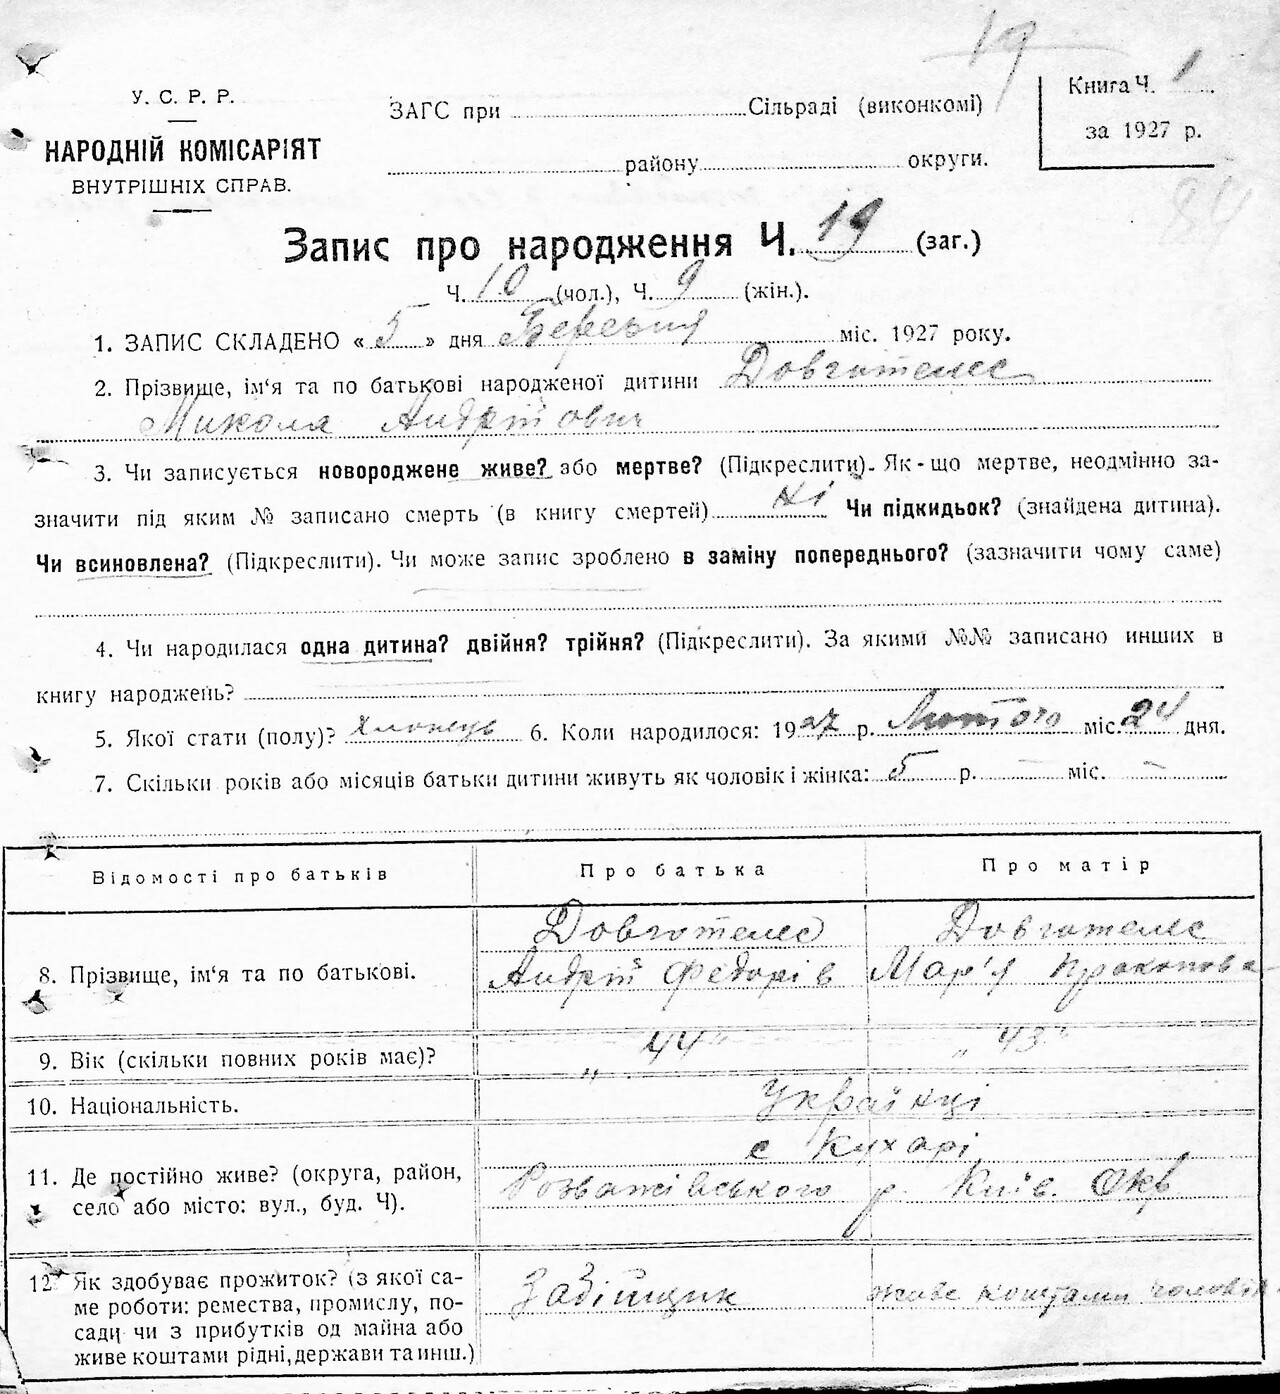 19
У. С. Р. Р.
НАРОДНІЙ КОМІСАРІЯТ
ВНУТРІШНІХ СПРАВ.
ЗАГС при Сільраді (виконкомі)
району округи.
Книга Ч. 1
за 1927 р.
84
Запис про народження Ч. 19 (заг.)
Ч. 10 (чол.), Ч. 9 (жін.).
1. ЗАПИС СКЛАДЕНО « 5 » дня Березня міс. 1927 року.
2. Прізвище, ім‘я та по батькові народженої дитини Довготелес
Микола Андрійович
3. Чи записується новороджене живе? або мертве? (Підкреслити). Як-що мертве, неодмінно за-
значити під яким № записано смерть (в книгу смертей) Ні Чи підкидьок? (знайдена дитина).
Чи всиновлена? (Підкреслити). Чи може запис зроблено в заміну попереднього? (зазначити чому саме)
4. Чи народилася одна дитина? двійня? трійня? (Підкреслити). За якими №№ записано инших в
книгу народжень?
5. Якої стати (полу)? Хлопець 6. Коли народилося: 1927 р. Лютого міс. 24 дня.
7. Скільки років або місяців батьки дитини живуть як чоловік і жінка: 5 р. — міс. —
Відомості про батьків Про батька Про матір
Довготелес Довготелес
8. Прізвище, ім‘я та по батькові. Андрій Федорів Мар'я Прокопова
9. Вік (скільки повних років має)? „ 44“ „ 43“
10. Національність. Українці
с Кухарі
11. Де постійно живе? (округа, район,
село або місто: вул., буд. Ч). Розважівського р. Київ. Окр
12. Як здобуває прожиток? (з якої са- Забійщик живе коштами чоловіка
ме роботи: ремества, промислу, по-
сади чи з прибутків од майна або
живе коштами рідні, держави та инш.)